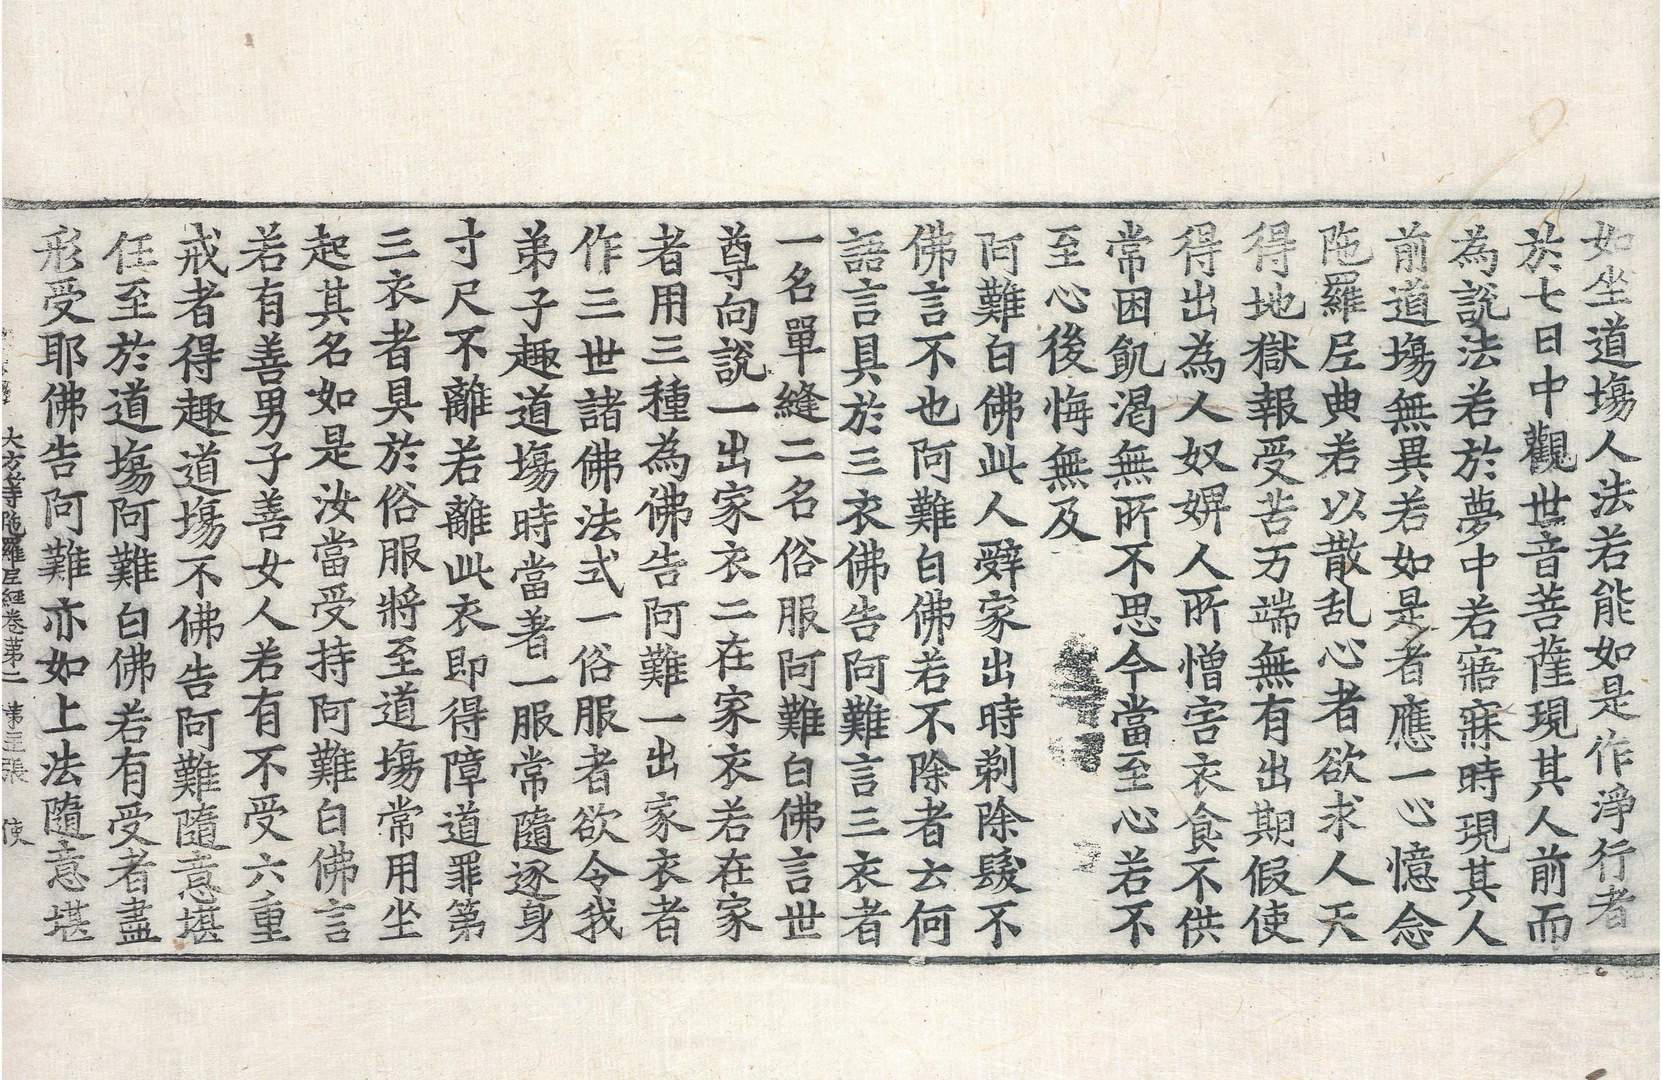 如坐道塲人法若能如是作淨行者
於七日中觀世音菩薩現其人前而
為說法若於夢中若寤寐時現其人
前道塲無異若如是者應一心憶念
陁羅尼典若以散乱心者欲求人天
得地獄報受苦万端無有出期假使
得出為人奴婢人所憎害衣食不供
常困飢渴無所不思今當至心若不
至心後悔無及
阿難白佛此人辤家出時剃除髮不
佛言不也阿難白佛若不除者云何
語言具於三衣佛告阿難言三衣者
一名單縫二名俗服阿難白佛言世
尊向說一出家衣二在家衣若在家
者用三種為佛告阿難一出家衣者
作三世諸佛法式一俗服者欲令我
弟子趣道塲時當著一服常隨逐身
寸尺不離若離此衣即得障道罪第
三衣者具於俗服將至道塲常用坐
起其名如是汝當受持阿難白佛言
若有善男子善女人若有不受六重
戒者得趣道塲不佛告阿難隨意堪
任至於道塲阿難白佛若有受者盡
形受耶佛告阿難亦如上法隨意堪
大方等陁羅尼經卷第二 第三張 使